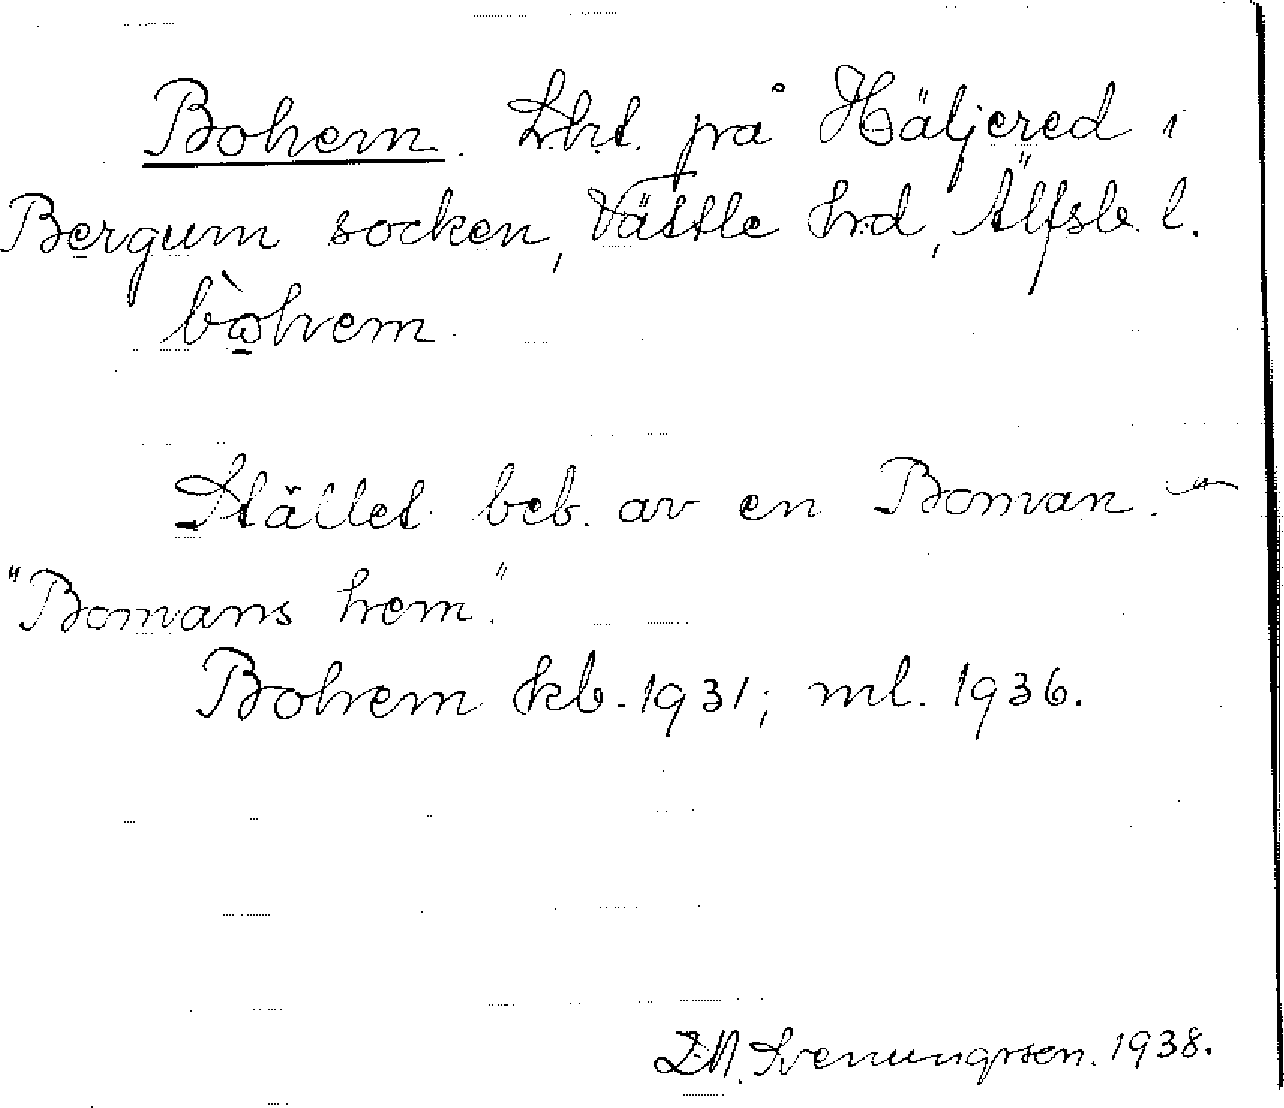 Bohem. Lht. på Häljered i
Bergum socken, Vättle hd, Älfsb. l.
bòhem.
Stället beb. av en Boman.
"Bomans hem".
Bohem kb. 1931; ml. 1936.
Svenungsson. 1938.